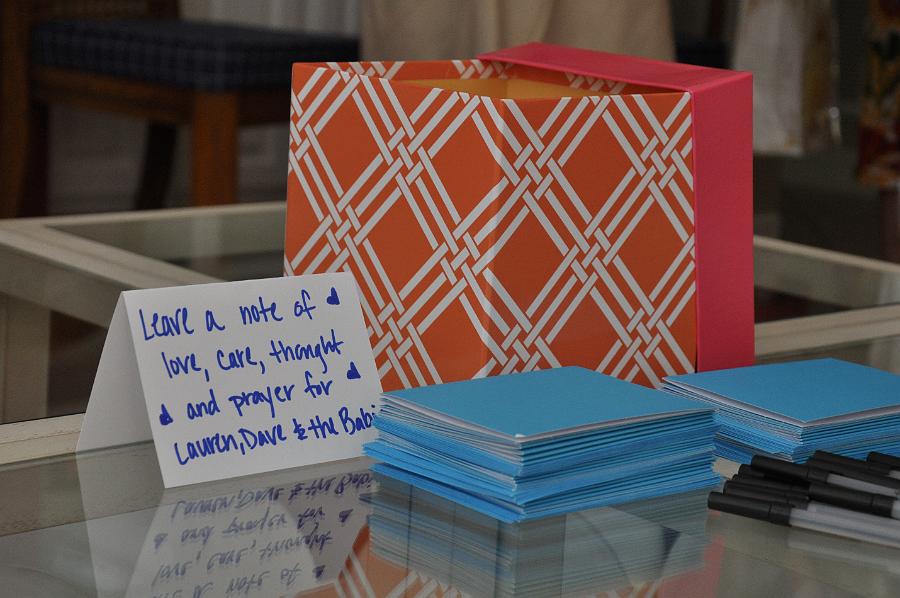 Leave a note of
love, care, thought
and prayer for
Lauren, Dave & the Babi